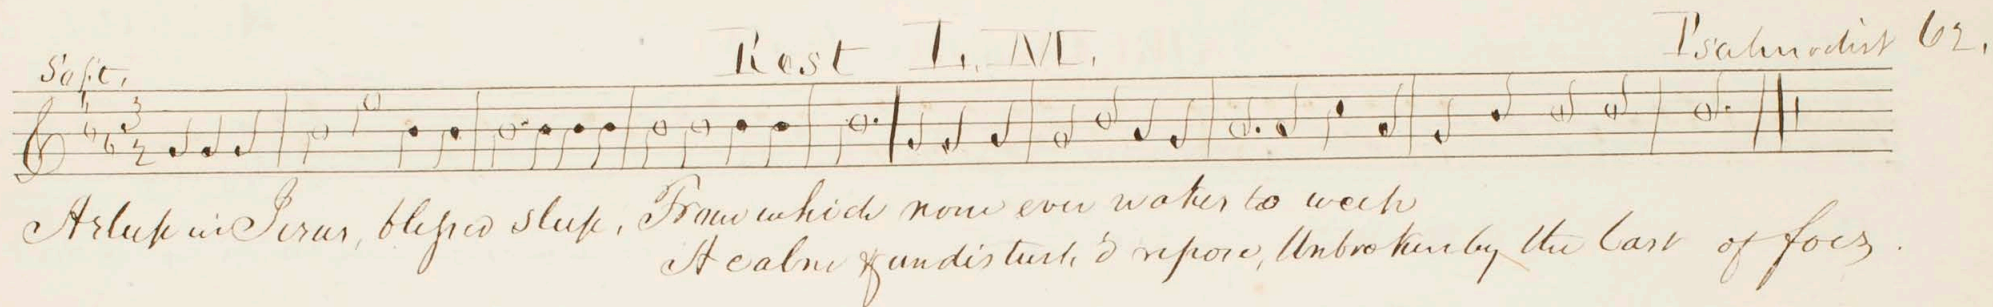 Rest L. M. Psalmodist 62,
Soft,
3
2
Asleep in Jesus, blessed sleep, From which none ever wakes to weep
A calm & undisturb'd repose, Unbroken by the last of foes.